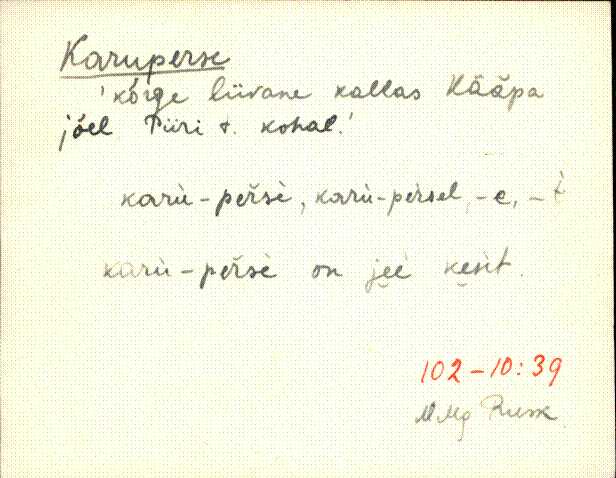 Karuperse
'kõrge liivane kallas Kääpa
jõel Piiri t. kohal.'
karù-peřsè, karù-peřsel, -e, -t
karù-peřsè on jeè kesìt.
102-10:39
MMg Rusk